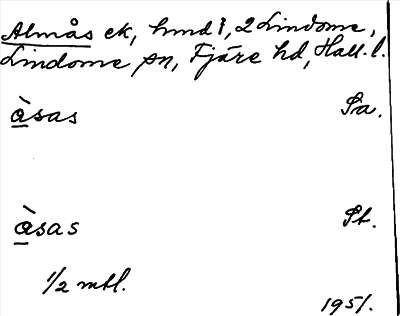 Almås ek, hmd, 2 Lindome,
Lindome sn, Fjäre hd, Hall. l.
àsas Sa.
àsas St.
1/2 mtl.
1951.